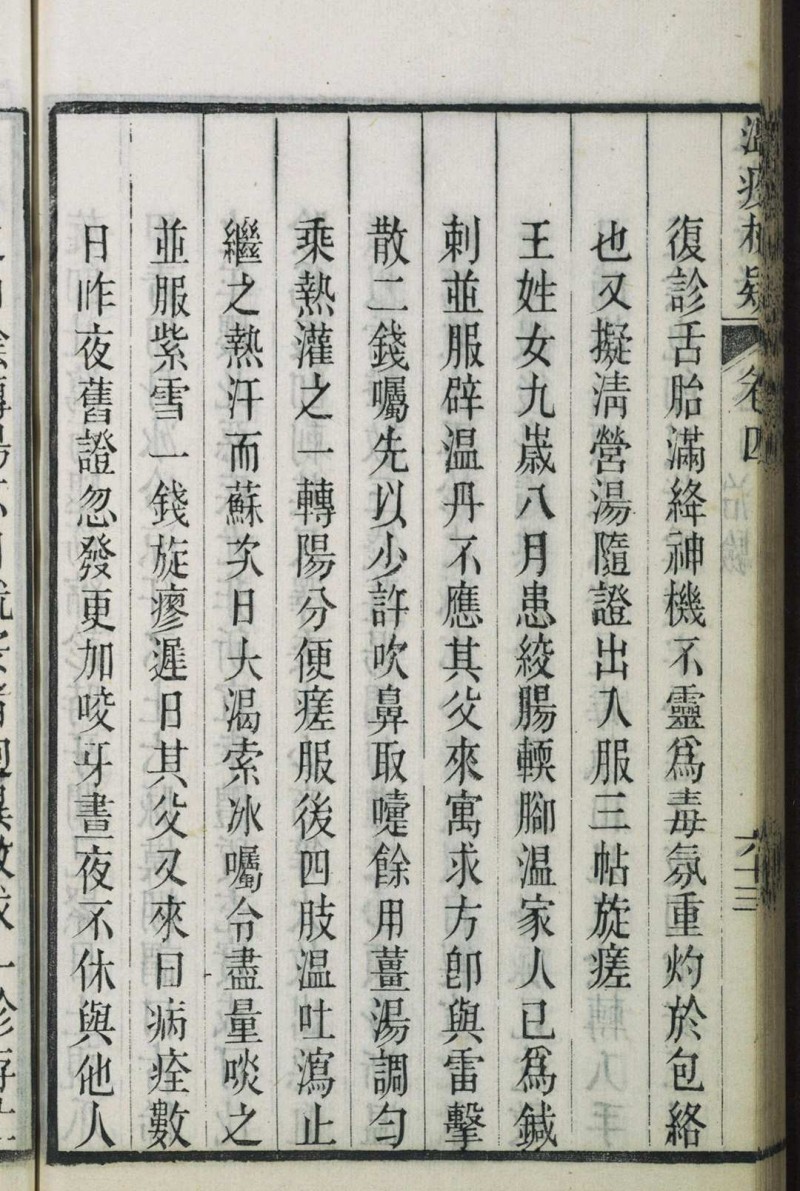 卷四
六十三
復診舌胎滿絳神機不靈爲毒氛重灼於包絡
也又擬淸營湯隨證出入服三帖旋瘥
王姓女九歲八月患絞腸輭腳溫家人已爲鍼
刺並服辟溫丹不應其父來寓求方卽與雷擊
散二錢囑先以少許吹鼻取嚏餘用薑湯調勻
乘熱灌之一轉陽分便瘥服後四肢溫吐瀉止
繼之熱汗而蘇次日大渴索冰囑令盡量啖之
並服紫雪一錢旋瘳遲日其父又來曰病痊數
日昨夜舊證忽發更加咬牙晝夜不休與他人